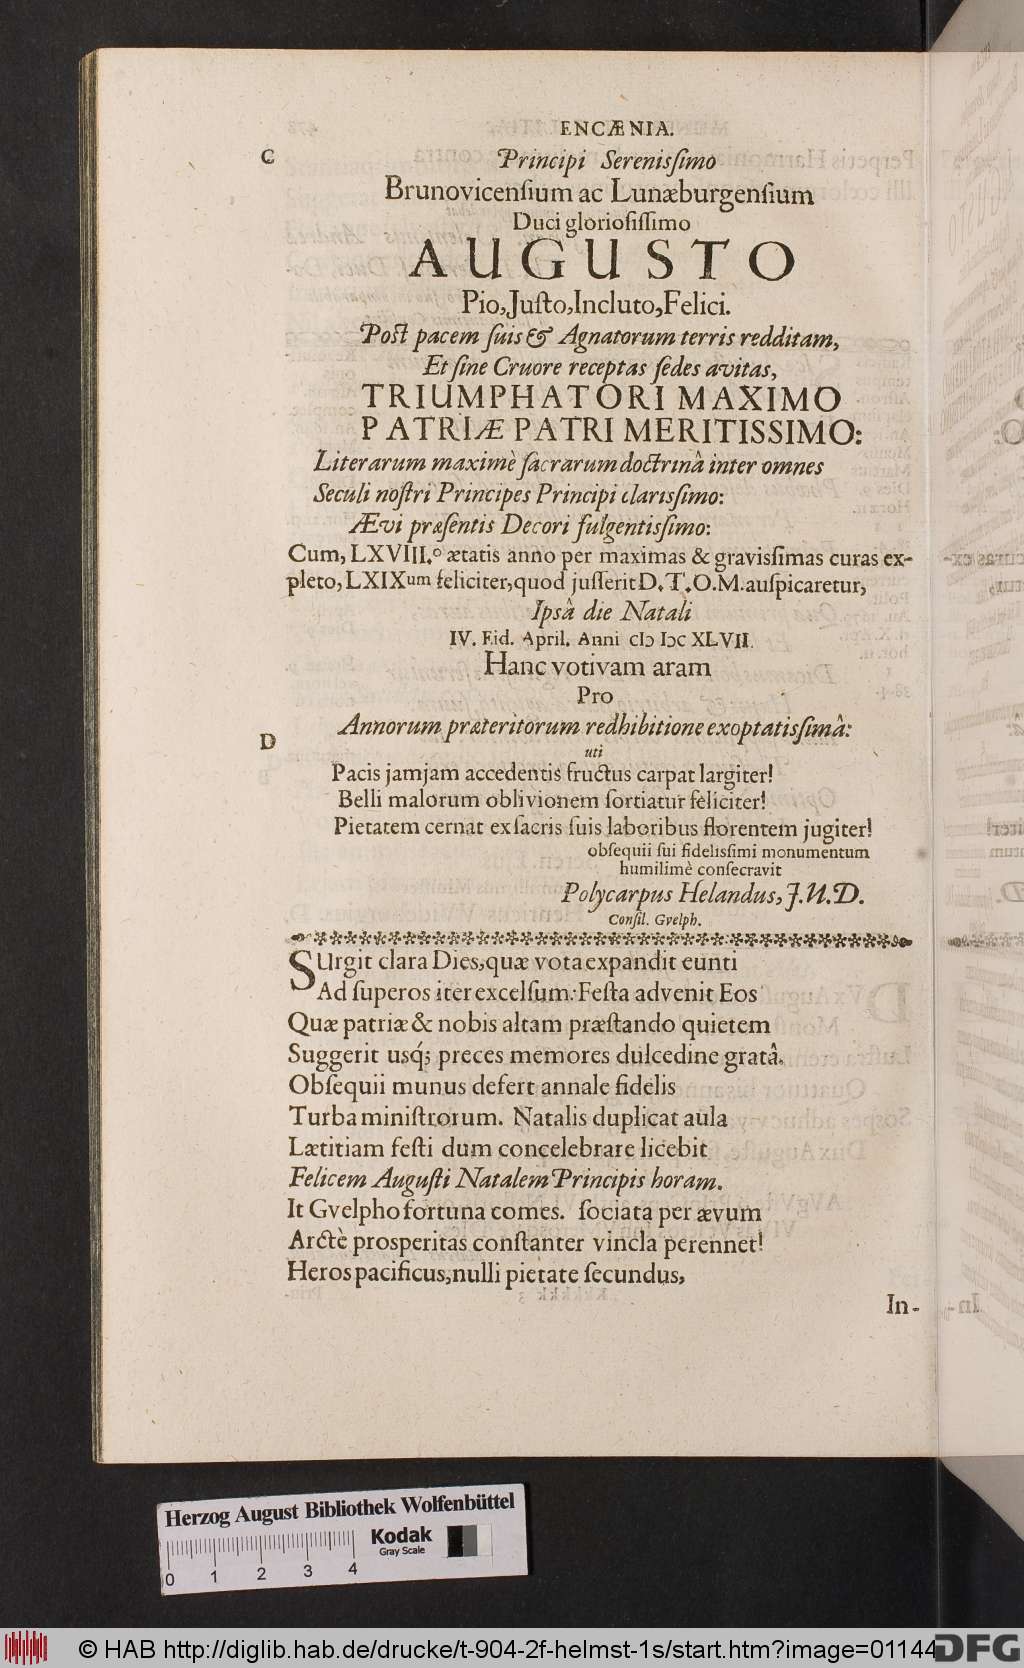 ENCÆNIA.
C
Principi Serenisſimo
Brunovicenſium ac Lunæburgenſium
Duci glorioſiſſimo
AUGUSTO
Pio, Juſto, Incluto, Felici.
Poſt pacem ſuis & Agnatorum terris redditam,
Et ſine Cruore receptas ſedes avitas,
TRIUMPHATORI MAXIMO
PATRIÆ PATRI MERITISSIMO:
Literarum maximè ſacrarum doctrinâ inter omnes
Seculi noſtri Principes Principi clarisſimo:
Ævi præſentis Decori fulgentisſimo:
Cum, LXVIII.º ætatis anno per maximas & graviſſimas curas ex-
pleto, LXIXum feliciter, quod juſſerit D. T. O. M. auſpicaretur,
Ipsâ die Natali
IV. Eid. April. Anni cIɔ Iɔc XLVII.
Hanc votivam aram
Pro
Annorum præteritorum redhibitione exoptatisſimâ:
D
uti
Pacis jamjam accedentis fructus carpat largiter!
Belli malorum oblivionem ſortiatur feliciter!
Pietatem cernat ex ſacris ſuis laboribus florentem jugiter!
obſequii ſui fidelisſimi monumentum
humilimè conſecravit
Polycarpus Helandus, J.U.D.
Conſil. Gvelph.
SUrgit clara Dies, quæ vota expandit eunti
Ad ſuperos iter excelſum: Feſta advenit Eos
Quæ patriæ & nobis altam præſtando quietem
Suggerit usq́; preces memores dulcedine gratâ.
Obſequii munus defert annale fidelis
Turba miniſtrorum. Natalis duplicat aula
Lætitiam feſti dum concelebrare licebit
Felicem Auguſti Natalem Principis horam.
It Gvelpho fortuna comes. ſociata per ævum
Arctè prosperitas conſtanter vincla perennet!
Heros pacificus, nulli pietate ſecundus,
In-
Herzog August Bibliothek Wolfenbüttel
Kodak
Gray Scale
0 1 2 3 4
© HAB http://diglib.hab.de/drucke/t-904-2f-helmst-1s/start.htm?image=01144
DFG